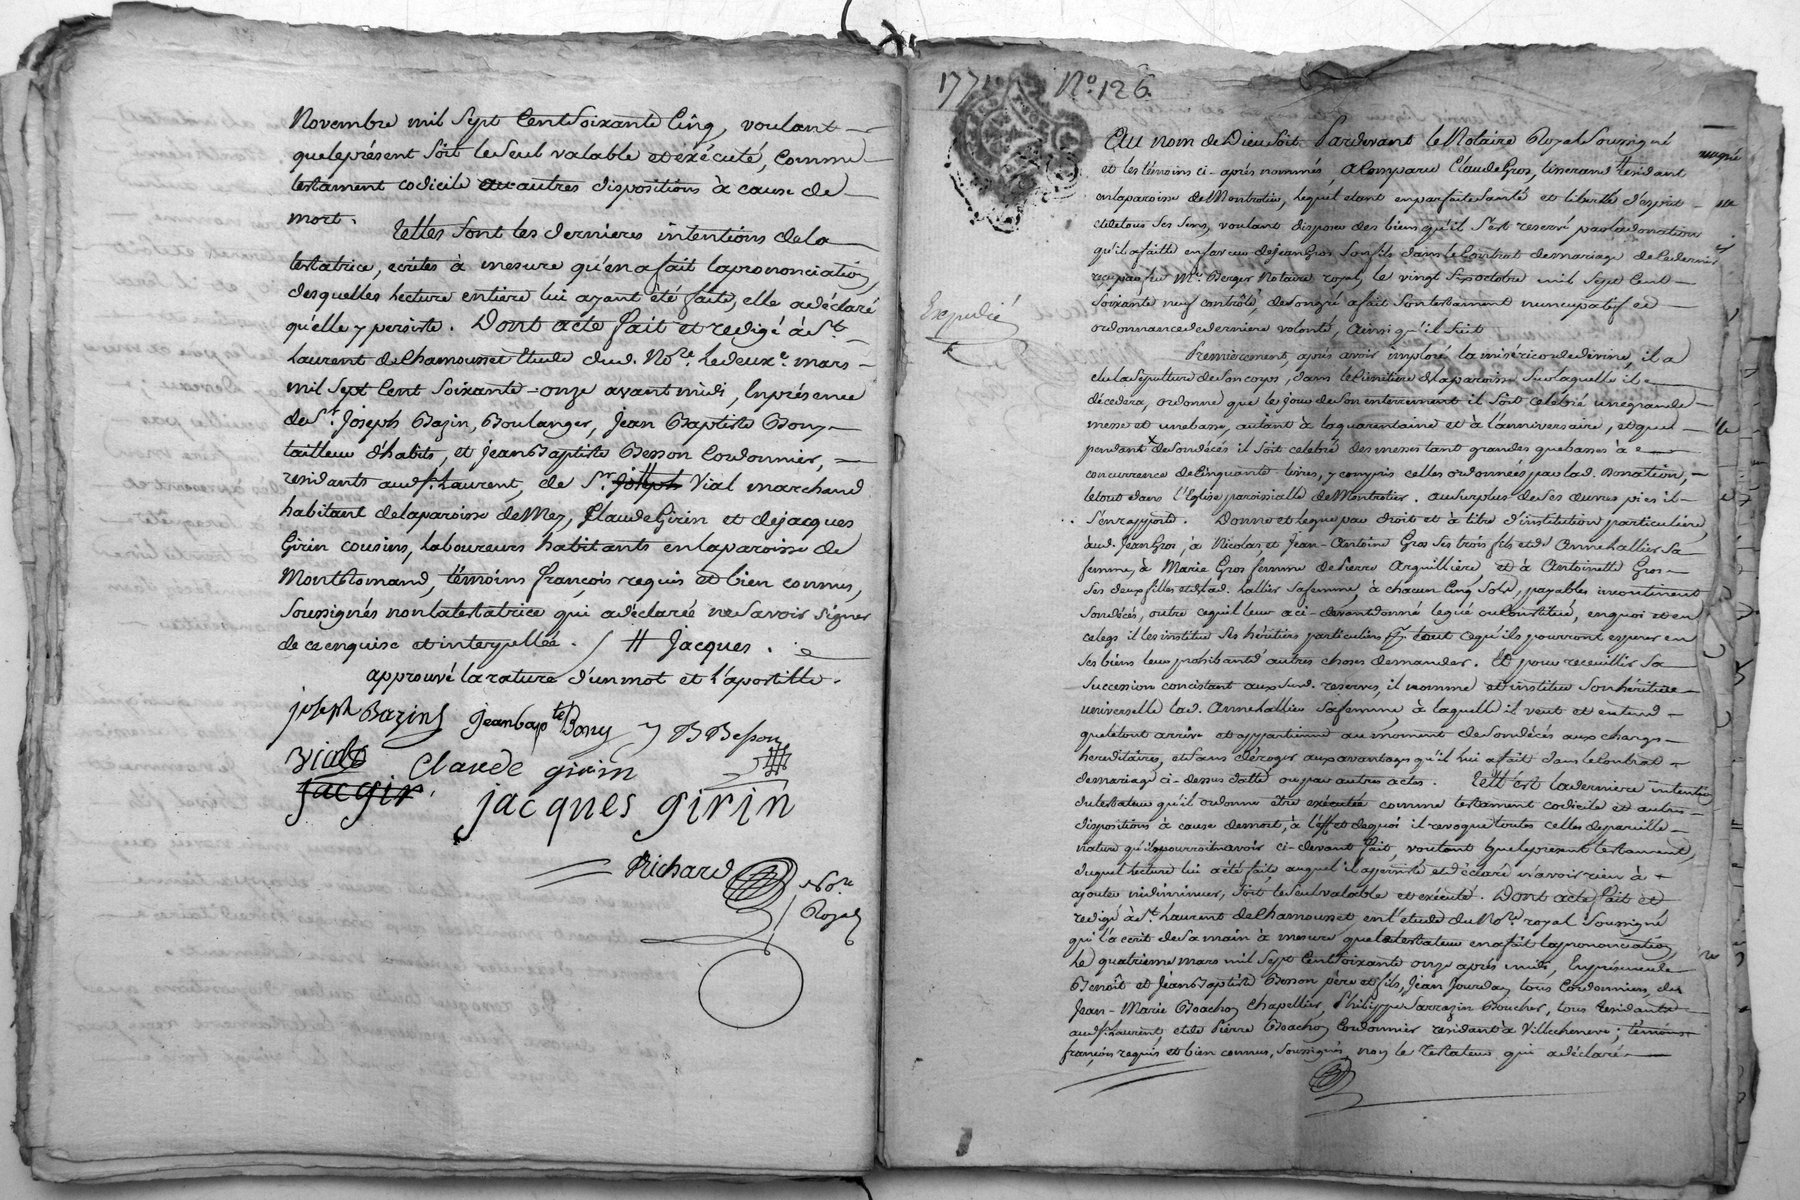 Novembre mil Sept Cent Soixante Cinq, voulant
que le présent Soit le Seul valable et exécuté, Comme
testament codicile ou autres dispositions à cause de
mort. Telles Sont les dernieres intentions de la
testatrice, ecrites à mesure qu'en a fait la prononciation,
desquelles Lecture entiere lui ayant été faite, elle a déclaré
qu'elle y persiste. Dont acte fait et redigé à St.
Laurent de Chamousset Etude dud. Nore. Le deuxe. mars
mil Sept Cent Soixante-onze avant midi, En présence
de Sr. Joseph Bazin, Boulanger, Jean Baptiste Bony
tailleur d'habits, et Jean Baptiste Besson Cordonnier,
residants aud. St. Laurent, de Sr. Joseph Vial marchand
habitant de la paroisse de Mey, Claude Girin et de jacques
Girin cousins, Laboureurs habitants en la paroisse de
Montromand, témoins françois requis et bien connus,
Soussignés non la testatrice qui a déclarée ne Savoir Signer
de ce enquise et interpellée. / # Jacques.
approuvé la rature d'un mot et l'apostille.
joseph Bazin jean bapte Bony J B Besson
vial Claude girin
jacgir jacques girin
Richard Nore
Royal
1771 No. 126
Au nom de Dieu Soit Pardevant le Notaire Royal Soussigné
et les témoins ci-après nommés, a Comparu Claude Gros, tisserand résidant
en la paroisse de Montrotier, Lequel etant en parfaite Santé et liberté d'esprit
et de tous Ses Sens, voulant disposer des biens qu'il S'est reservé par la donation
qu'il a faitte en faveur de Jean Gros Son fils dans le Contrat de mariage de Ce dernier
reçu par feu Me. Berger Notaire royal, le vingt Six octobre mil Sept Cent
Soixante neuf Controlé, de Son gré a fait Son testament nuncupatif et
Expedié
ordonnance de derniere volonté, ainsi qu'il Suit
Premierement, après avoir imploré la miséricorde divine, il a
elu la Sépulture de Son corps, dans le Cimetière de la paroisse Sur laquelle il
décedera, ordonne que le jour de Son enterrement il Soit Celébré une grande
messe et une basse, autant à la quarantaine et à l'anniversaire, et que
pendant Son décés il Soit celebré des messes tant grandes que basses à
concurrence de Cinquante livres, y compris celles ordonnées par lad. donation,
le tout dans l'Eglise paroissialle de Montrotier. au Surplus de Ses œuvres pies il
S'en rapporte. Donne et legue par droit et à titre d'institution particuliere
aud. Jean Gros, à Nicolas et Jean-Antoine Gros Ses trois fils et de Anne hallier Sa
femme, à Marie Gros femme de Pierre Arquilliere et à Antoinette Gros
Ses deux filles et de lad. hallier Sa femme, à chacun Cinq Sols, payables incontinent
Son décés, outre ce qu'il leur a ci-devant donné legué ou Constitué, en quoi et en
ce legs il les institue Ses héritiers particuliers tout ce qu'ils pourront esperer en
Ses biens leur prohibant d'autres choses demander. Et pour receuillir Sa
Succession concistant aux Susd. reserves, il nomme et institue Son héritiere
universelle lad. Anne hallier Sa femme, à laquelle il veut et entend
que le tout arrive et appartienne au moment de Son décés aux charges
hereditaires, et Sans déroger aux avantages qu'il lui a fait dans le Contrat
de mariage ci-dessus datté ou par autres actes. Telle est la derniere intention
du testateur qu'il ordonne être exécutée comme testament codicile et autres
dispositions à cause de mort, à l'effet de quoi il revoque toutes celles de pareille
nature qu'il pourroit avoir ci-devant fait, voulant que le present testament,
duquel lecture lui a été faite auquel il a persisté et déclaré n'avoir rien à
ajouter ni diminuer, Soit le Seul valable et exécuté. Dont acte fait et
redigé à St. Laurent de Chamousset en l'étude du Nore. royal Soussigné
qui l'a écrit de Sa main à mesure que le testateur en a fait la prononciation,
Le quatrieme mars mil Sept Cent Soixante onze après midi, En présence de
Benoît et Jean Baptiste Besson père et fils, Jean Jourdan tous Cordonniers, de
Jean-Marie Boachon Chapellier, Philippe Sarrazin Boucher, tous residants
aud. St. Laurent, et de Pierre Boachon Cordonnier résidant à Villecheneve; témoins
françois requis et bien connus, Soussignés, non le testateur qui a déclaré